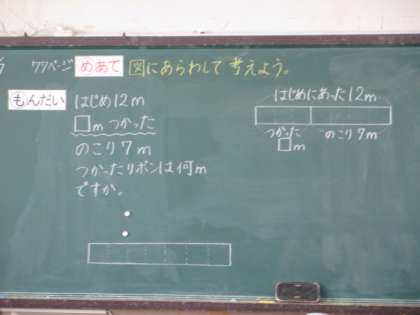 77ページ めあて 図にあらわして 考えよう。
もんだい はじめ12m
□mつかった
のこり7m
つかったリボンは何m
ですか。
はじめにあった12m
つかった
□m
のこり7m